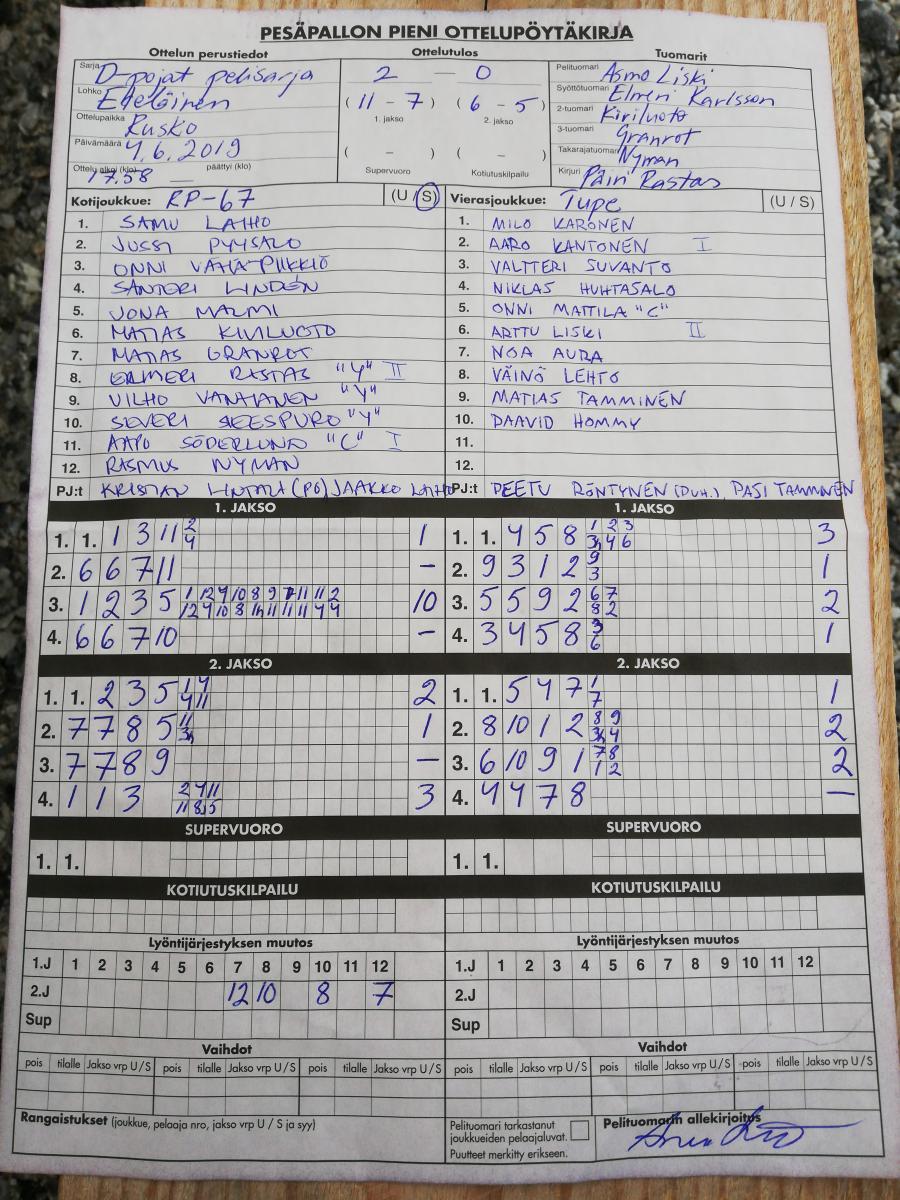 PESÄPALLON PIENI OTTELUPÖYTÄKIRJA
Ottelun perustiedot
Sarja D-pojat pelisarja
Lohko Eteläinen
Ottelupaikka Rusko
Päivämäärä 4.6.2019
Ottelu alkoi (klo) 17.58 — päättyi (klo)
Ottelutulos
2 — 0
(11 - 7) (6 - 5)
1. jakso 2. jakso
( - ) ( - )
Supervuoro Kotiutuskilpailu
Tuomarit
Pelituomari Asmo Liski
Syöttötuomari Elmeri Karlsson
2-tuomari Kiriluoto
3-tuomari Granrot
Takarajatuomari Nyman
Kirjuri Päivi Rastas
Kotijoukkue: RP-67 (U / S)
1. SAMU LAIHO
2. JUSSI PYYSALO
3. ONNI VÄHÄ-PIIKKIÖ
4. SANTERI LINDÉN
5. JONA MALMI
6. MATIAS KIVILUOTO
7. MATIAS GRANROT
8. ELMERI RASTAS "Y" II
9. VILHO VANTIANEN "Y"
10. SEVERI SEESPURO "Y"
11. AAPO SÖDERLUND "C" I
12. RASMUS NYMAN
PJ:t KRISTIAN (PO) JAAKKO LAIHO
Vierasjoukkue: TuPe (U / S)
1. MILO KARONEN
2. AARO KANTONEN I
3. VALTTERI SUVANTO
4. NIKLAS HUHTASALO
5. ONNI MATTILA "C"
6. ARTTU LISKI II
7. NOA AURA
8. VÄINÖ LEHTO
9. MATIAS TAMMINEN
10. DAAVID HOMMY
11.
12.
PJ:t PEETU RÖNTYNEN (DUH.), PASI TAMMINEN
1. JAKSO
1. 1. 1 3 11 2 1
4
2. 6 6 7 11 -
3. 1 2 3 5 1 12 4 10 8 9 7 11 11 2 10
12 4 10 8 1h 11 11 11 4 4
4. 6 6 7 10 -
1. JAKSO
1. 1. 4 5 8 1 2 3 3
3h 4 6
2. 9 3 1 2 9 1
3
3. 5 5 9 2 6 7 2
8 2
4. 3 4 5 8 3 1
6
2. JAKSO
1. 1. 2 3 5 1 4 2
4 11
2. 7 7 8 5 11 1
3h
3. 7 7 8 9 —
4. 1 1 3 2 4 11 3
11 8 5
2. JAKSO
1. 1. 5 4 7 1 1
7
2. 8 10 1 2 8 9 2
3h 4
3. 6 10 9 1 7 8 2
1 2
4. 4 4 7 8 —
SUPERVUORO
1. 1.
SUPERVUORO
1. 1.
KOTIUTUSKILPAILU
KOTIUTUSKILPAILU
Lyöntijärjestyksen muutos
1.J 1 2 3 4 5 6 7 8 9 10 11 12
2.J 12 10 8 7
Sup
Lyöntijärjestyksen muutos
1.J 1 2 3 4 5 6 7 8 9 10 11 12
2.J
Sup
Vaihdot
pois tilalle Jakso vrp U / S pois tilalle Jakso vrp U / S pois tilalle Jakso vrp U / S
Vaihdot
pois tilalle Jakso vrp U / S pois tilalle Jakso vrp U / S pois tilalle Jakso vrp U / S
Rangaistukset (joukkue, pelaaja nro, jakso vrp U / S ja syy)
Pelituomari tarkastanut
joukkueiden pelaajaluvat.
Puutteet merkitty erikseen.
Pelituomarin allekirjoitus